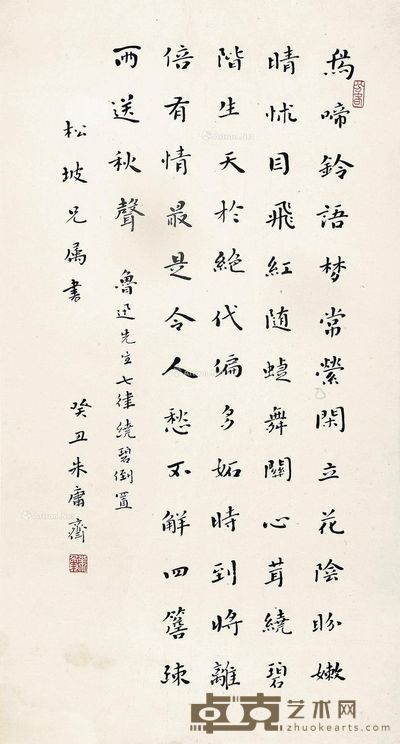 鴂啼鈴語梦常縈閑立花陰盼嫩
晴怵目飛紅随蜨舞關心茸繞碧
階生天於絶代偏多妬時到将離
倍有情最是令人愁不解四簷疎
雨送秋聲
魯迅先生七律繞碧倒置
松坡兄属書
癸丑朱庸齋
卓克艺术网
zhuokearts.com